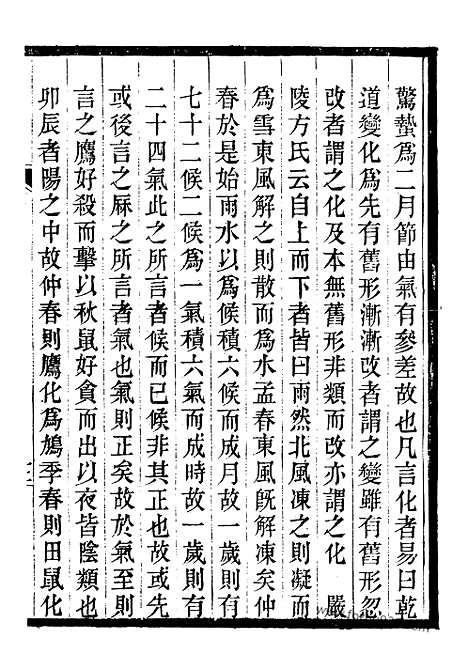 驚蟄爲二月節由氣有參差故也凡言化者易曰乾
道變化爲先有舊形漸漸改者謂之變雖有舊形忽
改者謂之化及本無舊形非類而改亦謂之化　嚴
陵方氏云自上而下者皆曰雨然北風凍之則凝而
爲雪東風解之則散而爲水孟春東風旣解凍矣仲
春於是始雨水以爲候積六候而成月故一歲則有
七十二候二候爲一氣積六氣而成時故一歲則有
二十四氣此之所言者候而已候非其正也故或先
或後言之厤之所言者氣也氣則正矣故於氣至則
言之鷹好殺而擊以秋鼠好貪而出以夜皆陰類也
卯辰者陽之中故仲春則鷹化爲鳩季春則田鼠化